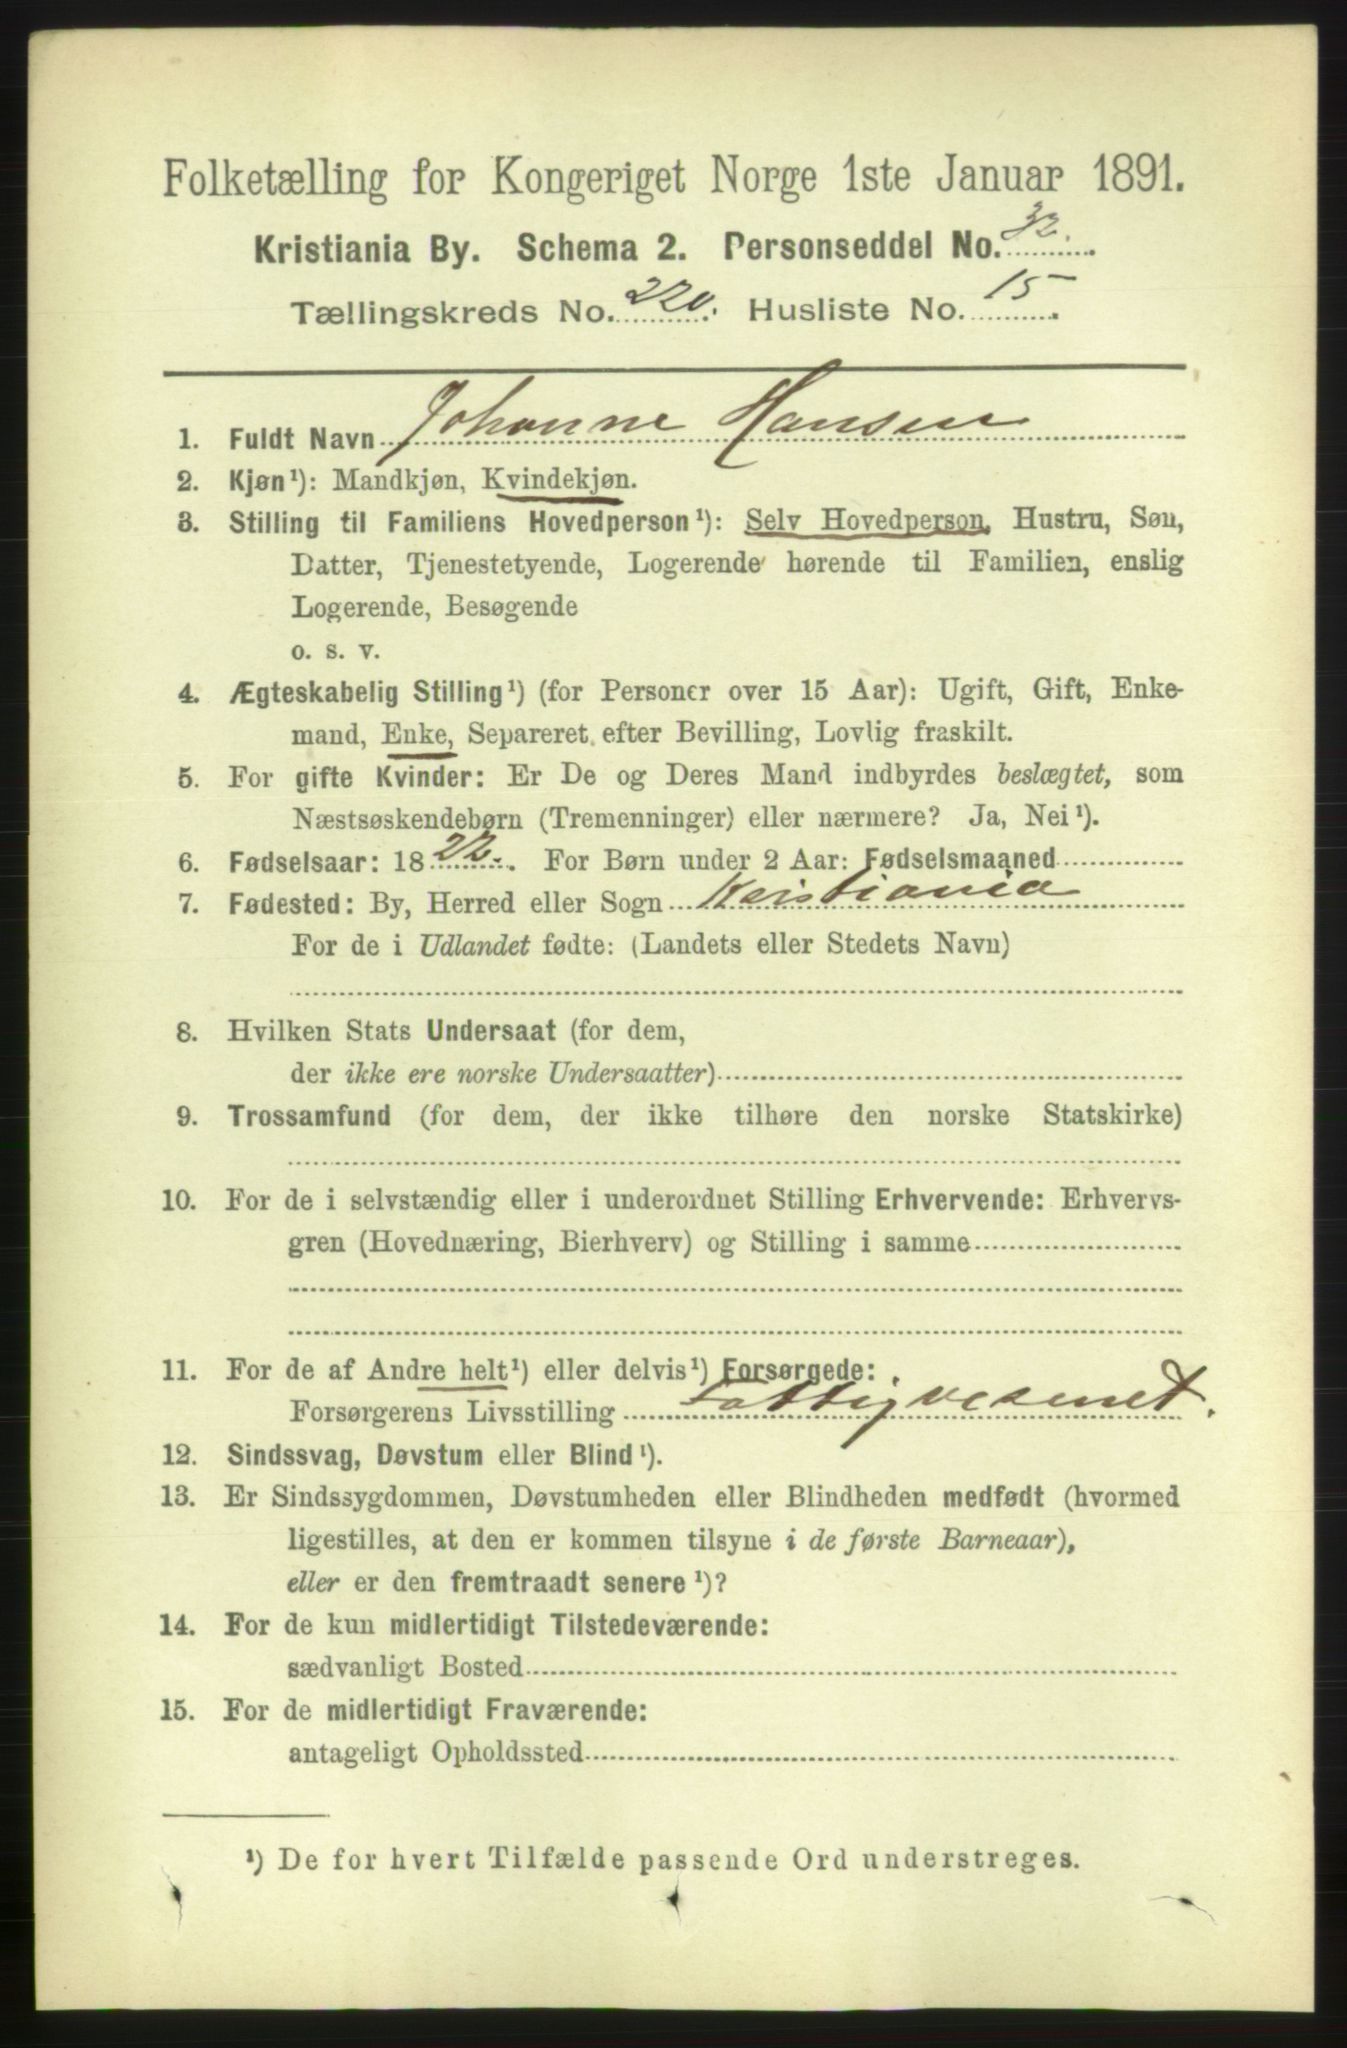 Folketælling for Kongeriget Norge 1ste Januar 1891.
Kristiania By. Schema 2. Personseddel No. 32.
Tællingskreds No. 220. Husliste No. 15
1. Fuldt Navn Johanne Hansen
2. Kjøn¹): Mandkjøn, Kvindekjøn.
3. Stilling til Familiens Hovedperson¹): Selv Hovedperson, Hustru, Søn,
Datter, Tjenestetyende, Logerende hørende til Familien, enslig
Logerende, Besøgende
o. s. v.
4. Ægteskabelig Stilling¹) (for Personer over 15 Aar): Ugift, Gift, Enke-
mand, Enke, Separeret efter Bevilling, Lovlig fraskilt.
5. For gifte Kvinder: Er De og Deres Mand indbyrdes beslægtet, som
Næstsøskendebørn (Tremenninger) eller nærmere? Ja, Nei¹).
6. Fødselsaar: 1822. For Børn under 2 Aar: Fødselsmaaned
7. Fødested: By, Herred eller Sogn Kristiania
For de i Udlandet fødte: (Landets eller Stedets Navn)
8. Hvilken Stats Undersaat (for dem,
der ikke ere norske Undersaatter)
9. Trossamfund (for dem, der ikke tilhøre den norske Statskirke)
10. For de i selvstændig eller i underordnet Stilling Erhvervende: Erhvervs-
gren (Hovednæring, Bierhverv) og Stilling i samme
11. For de af Andre helt¹) eller delvis¹) Forsørgede:
Forsørgerens Livsstilling Fattigvesenet.
12. Sindssvag, Døvstum eller Blind¹).
13. Er Sindssygdommen, Døvstumheden eller Blindheden medfødt (hvormed
ligestilles, at den er kommen tilsyne i de første Barneaar),
eller er den fremtraadt senere¹)?
14. For de kun midlertidigt Tilstedeværende:
sædvanligt Bosted
15. For de midlertidigt Fraværende:
antageligt Opholdssted
¹) De for hvert Tilfælde passende Ord understreges.